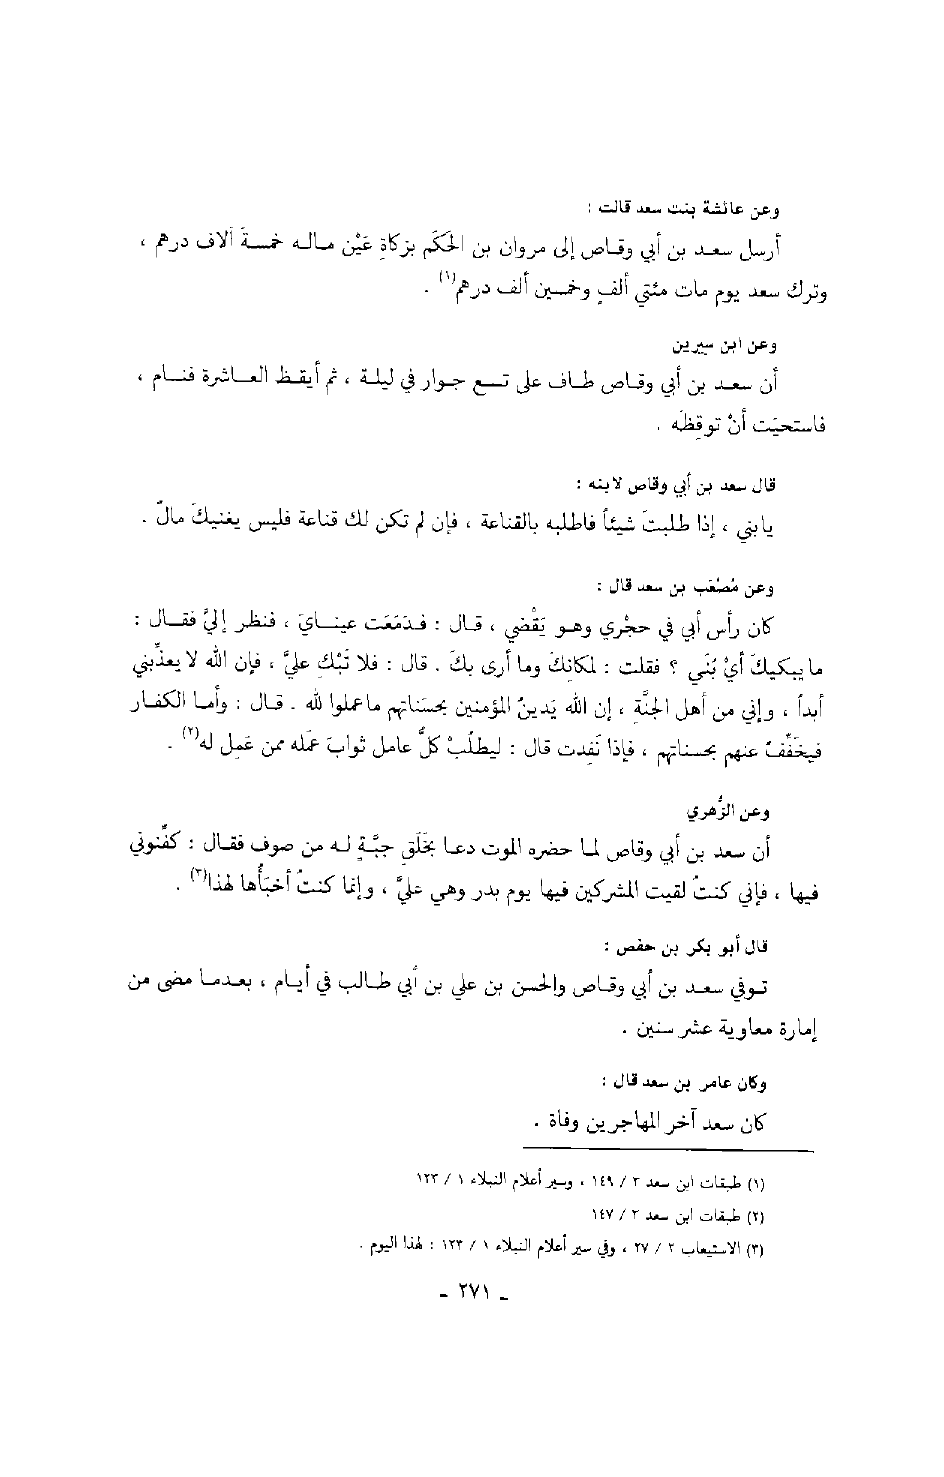 وعن عائشة بنت سعد قالت :
أرسل سعد بن أبي وقاص إلى مروان بن الحَكَم بزكاةِ عَيْن ماله خمسةَ آلاف درهم ،
وترك سعد يوم مات مئتي ألفٍ وخمسين ألف درهم(١) .
وعن ابن سيرين
أن سعد بن أبي وقاص طاف على تسع جوار في ليلة ، ثم أيقظ العاشرة فنام ،
فاستحيَت أنْ توقِظَه .
قال سعد بن أبي وقاص لابنه :
يابني ، إذا طلبتَ شيئاً فاطلبه بالقناعة ، فإن لم تكن لك قناعة فليس يغنيكَ مالٌ .
وعن مُصْعَب بن سعد قال :
كان رأس أبي في حجْري وهو يَقْضي ، قال : فدَمَعَت عينايَ ، فنظر إليَّ فقال :
ما يبكيكَ أيْ بُنَي ؟ فقلت : لمكانِكَ وما أرى بكَ . قال : فلا تَبْكِ عليَّ ، فإن الله لا يعذِّبني
أبداً ، وإني من أهل الجنَّةِ ، إن الله يَدينُ المؤمنين بحسَناتهم ماعملوا لله . قال : وأما الكفار
فيخَفِّفُ عنهم بحسناتهم ، فإذا نَفِدت قال : ليطلُبْ كلُّ عامل ثوابَ عمَله ممن عَمِل له(٢) .
وعن الزُّهري
أن سعد بن أبي وقاص لما حضره الموت دعا بخَلَقِ جبَّةٍ له من صوف فقال : كفِّنوني
فيها ، فإني كنتُ لقيت المشركين فيها يوم بدر وهي عليَّ ، وإنما كنتُ أخبَأُها لهذا(٣) .
قال أبو بكر بن حفص :
توفي سعد بن أبي وقاص والحسن بن علي بن أبي طالب في أيام ، بعدما مضى من
إمارة معاوية عشر سنين .
وكان عامر بن سعد قال :
كان سعد آخر المهاجرين وفاة .
(١) طبقات ابن سعد ٣ / ١٤٩ ، وسير أعلام النبلاء ١ / ١٢٣
(٢) طبقات ابن سعد ٣ / ١٤٧
(٣) الاستيعاب ٢ / ٢٧ ، وفي سير أعلام النبلاء ١ / ١٢٣ : لهذا اليوم .
- ٢٧١ -